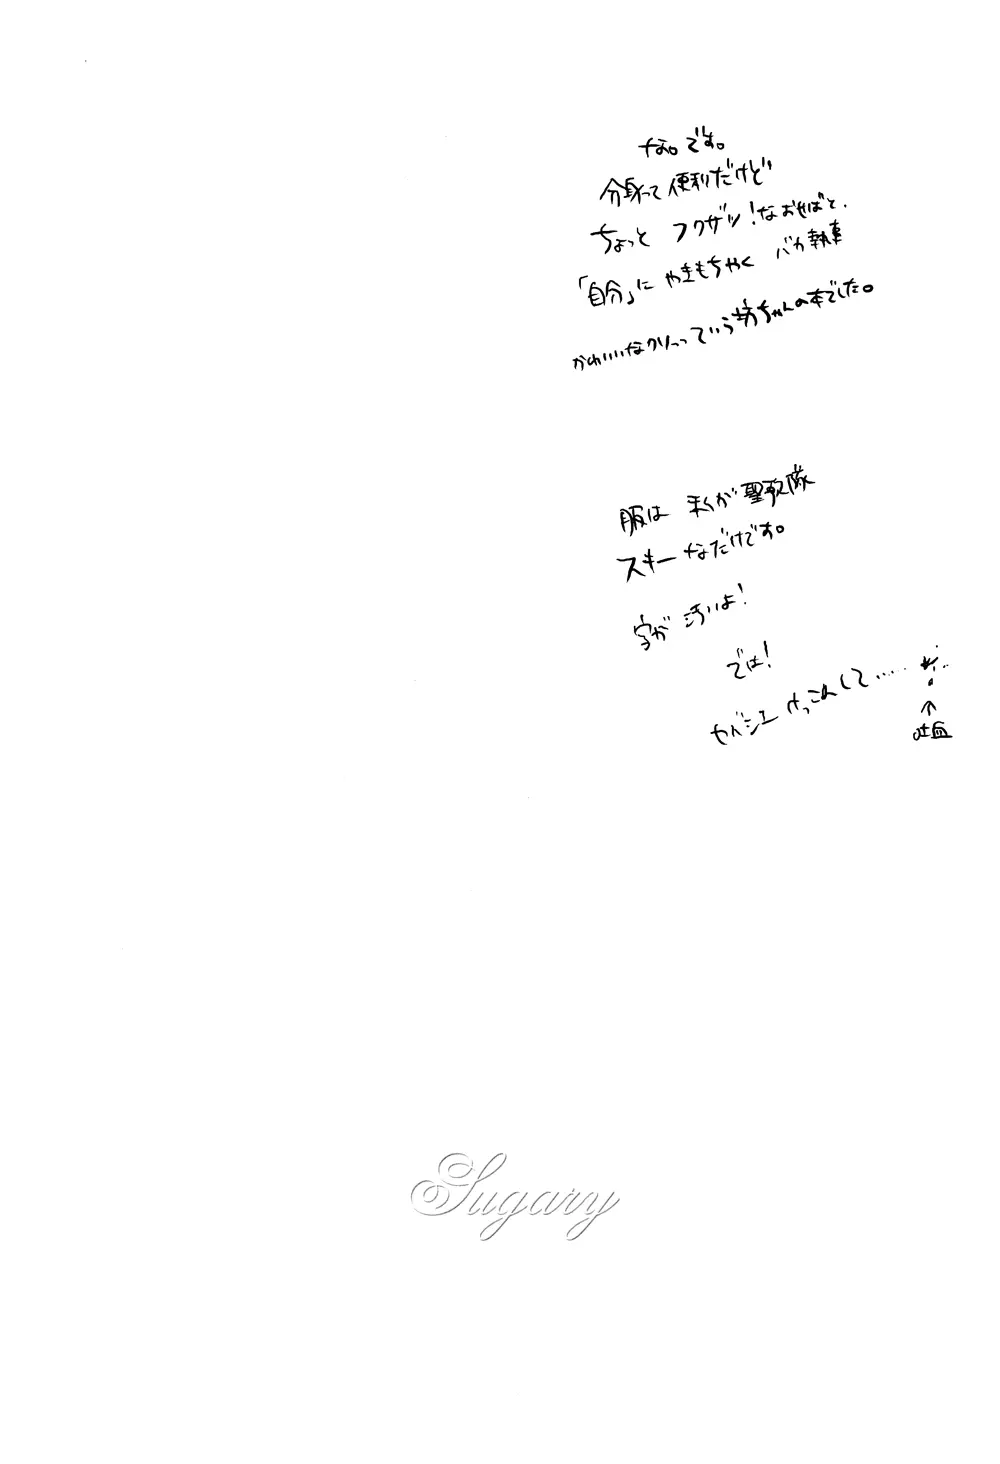 な。です。
分身って便利だけど
ちょっと フクザツ！なおせばと、
「自分」に やきもちやく バカ執事
かわいいなクソっっていう坊ちゃんの本でした。
服は 私が聖歌隊
スキーなだけです。
字が 汚いよ！
では！
セバシエ けっこんして……
↑
吐血
Sugary